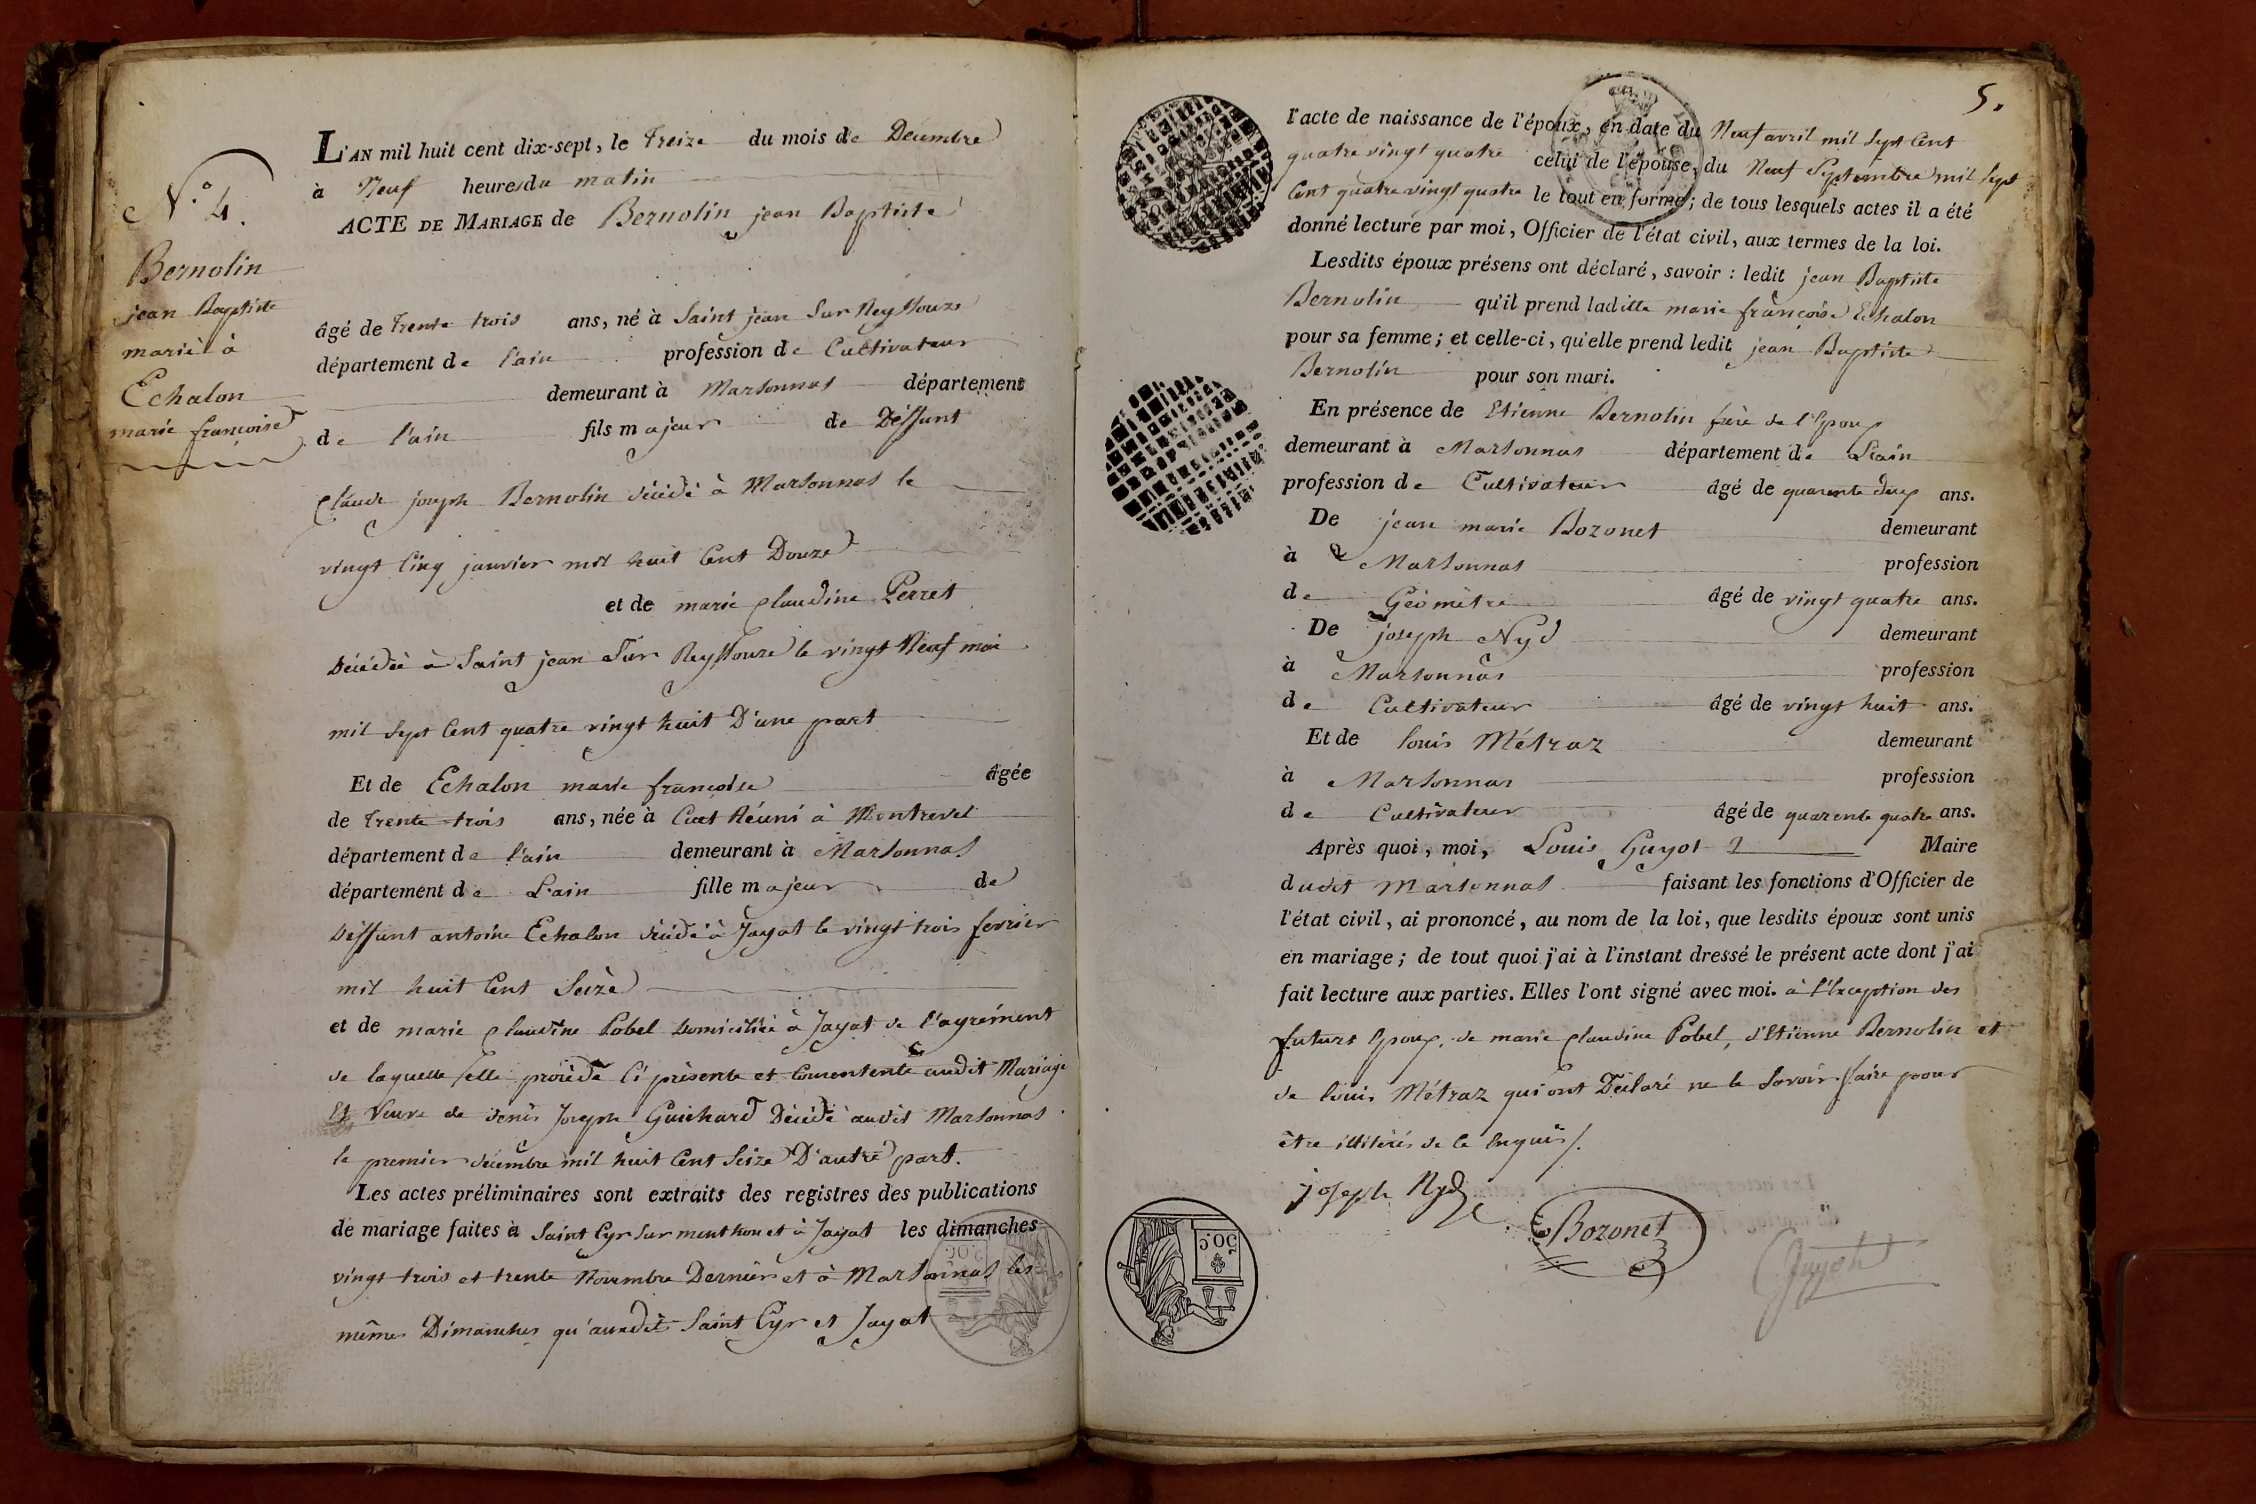 L'AN mil huit cent dix-sept, le treize du mois de Decembre
à Neuf heures du matin
ACTE DE MARIAGE de Bernolin jean Baptiste
N.º 4.
Bernolin
jean Baptiste
mariè à
Echalon
marie francoise
âgé de trente trois ans, né à Saint jean Sur Reyssouze
département de l'ain profession de Cultivateur
demeurant à Marsonnas département
de l'ain fils majeur de Deffunt
Claude joseph Bernolin décédé à Marsonnas le
vingt Cinq janvier mil huit Cent Douze
et de marie Claudine Perret
Décédée à Saint jean Sur Reyssouze le vingt Neuf mai
mil Sept Cent quatre vingt huit D'une part
Et de Echalon marie francoise âgée
de trente trois ans, née à Cuet Réuni à Montrevel
département de l'ain demeurant à Marsonnas
département de L'ain fille majeur de
Deffunt antoine Echalon décédé à Jayat le vingt trois fevrier
mil huit Cent Seize
et de marie Claudine Pobel Domiciliée à Jayat de l'agrément
de laquelle elle procède Ci présente et Consentente audit Mariage
Et Veuve de denis Joseph Guichard Décédé audit Marsonnas
le premier décembre mil huit Cent Seize D'autre part.
Les actes préliminaires sont extraits des registres des publications
de mariage faites à Saint Cyr Sur menthon et à Jayat les dimanches
vingt trois et trente Novembre Dernier et à Marsonnas les
mêmes Dimanches qu'auxdits Saint Cyr et Jayat
5.
l'acte de naissance de l'époux, en date du Neuf avril mil Sept Cent
quatre vingt quatre celui de l'épouse, du Neuf Septembre mil Sept
Cent quatre vingt quatre le tout en forme; de tous lesquels actes il a été
donné lecture par moi, Officier de l'état civil, aux termes de la loi.
Lesdits époux présens ont déclaré, savoir : ledit jean Baptiste
Bernolin qu'il prend ladille marie françoise Echalon
pour sa femme; et celle-ci, qu'elle prend ledit jean Baptiste
Bernolin pour son mari.
En présence de Etienne Bernolin frère de l'Epoux
demeurant à Marsonnas département de L'ain
profession de Cultivateur âgé de quarente deux ans.
De jean marie Bozonet demeurant
à Marsonnas profession
de Géomètre âgé de vingt quatre ans.
De joseph Nyd demeurant
à Marsonnas profession
de Cultivateur âgé de vingt huit ans.
Et de louis Métraz demeurant
à Marsonnas profession
de Cultivateur âgé de quarente quatre ans.
Après quoi, moi, Louis Guyot Maire
dudit Marsonnas faisant les fonctions d'Officier de
l'état civil, ai prononcé, au nom de la loi, que lesdits époux sont unis
en mariage; de tout quoi j'ai à l'instant dressé le présent acte dont j'ai
fait lecture aux parties. Elles l'ont signé avec moi. à l'Exception des
futurs Epoux, de marie Claudine Pobel, d'Etienne Bernolin et
de louis Métraz qui ont Déclaré ne le Savoir faire pour
être illitérés de ce Enquis/.
joseph Nyd
Bozonet
Guyot
50C
50C